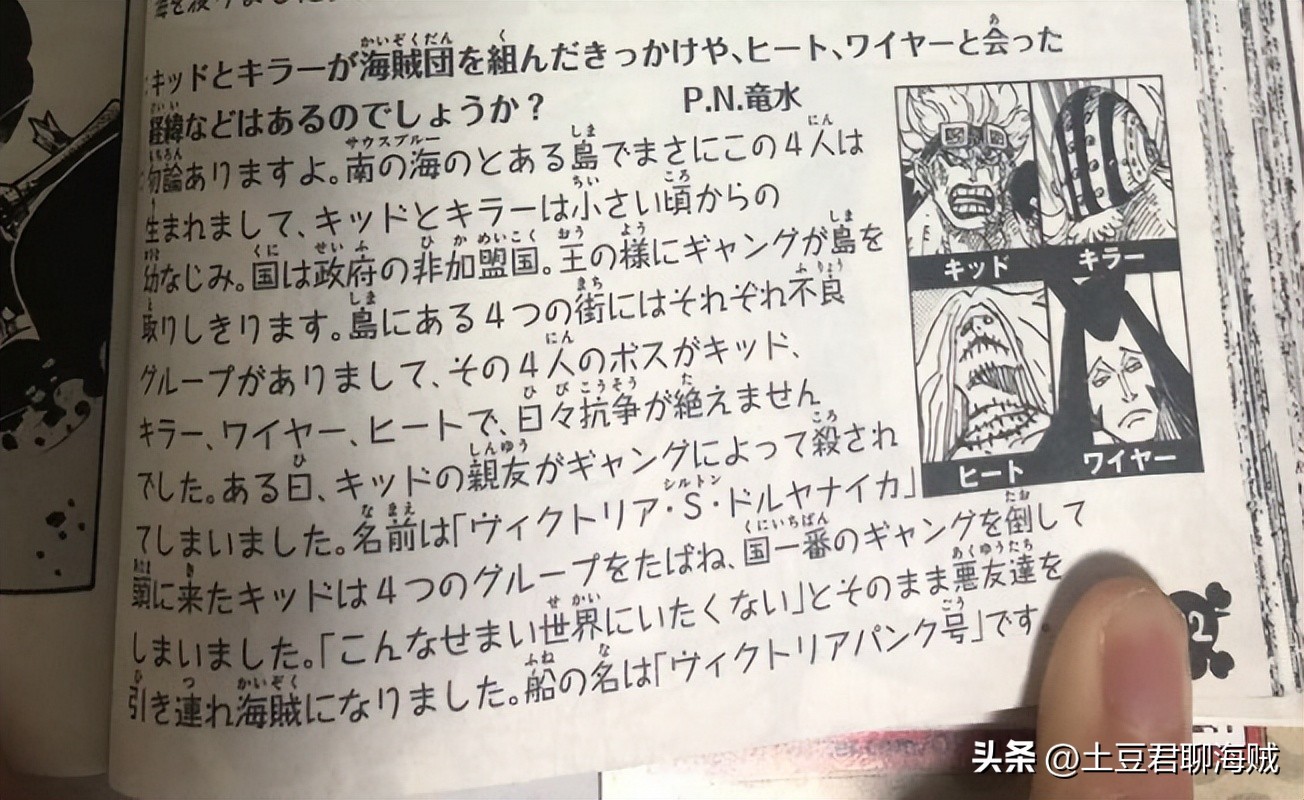 キッドとキラーが海賊団を組んだきっかけや、ヒート、ワイヤーと会った
経緯などはあるのでしょうか？ P.N.竜水
勿論ありますよ。南の海のとある島でまさにこの4人は
生まれまして、キッドとキラーは小さい頃からの
幼なじみ。国は政府の非加盟国。王の様にギャングが島を
取りしきります。島にある4つの街にはそれぞれ不良
グループがありまして、その4人のボスがキッド、
キラー、ワイヤー、ヒートで、日々抗争が絶えません
でした。ある日、キッドの親友がギャングによって殺され
てしまいました。名前は「ヴィクトリア・S・ドルヤナイカ」
頭に来たキッドは4つのグループをたばね、国一番のギャングを倒して
しまいました。「こんなせまい世界にいたくない」とそのまま悪友達を
引き連れ海賊になりました。船の名は「ヴィクトリアパンク号」です。
キッド
キラー
ヒート
ワイヤー
头条 @土豆君聊海贼